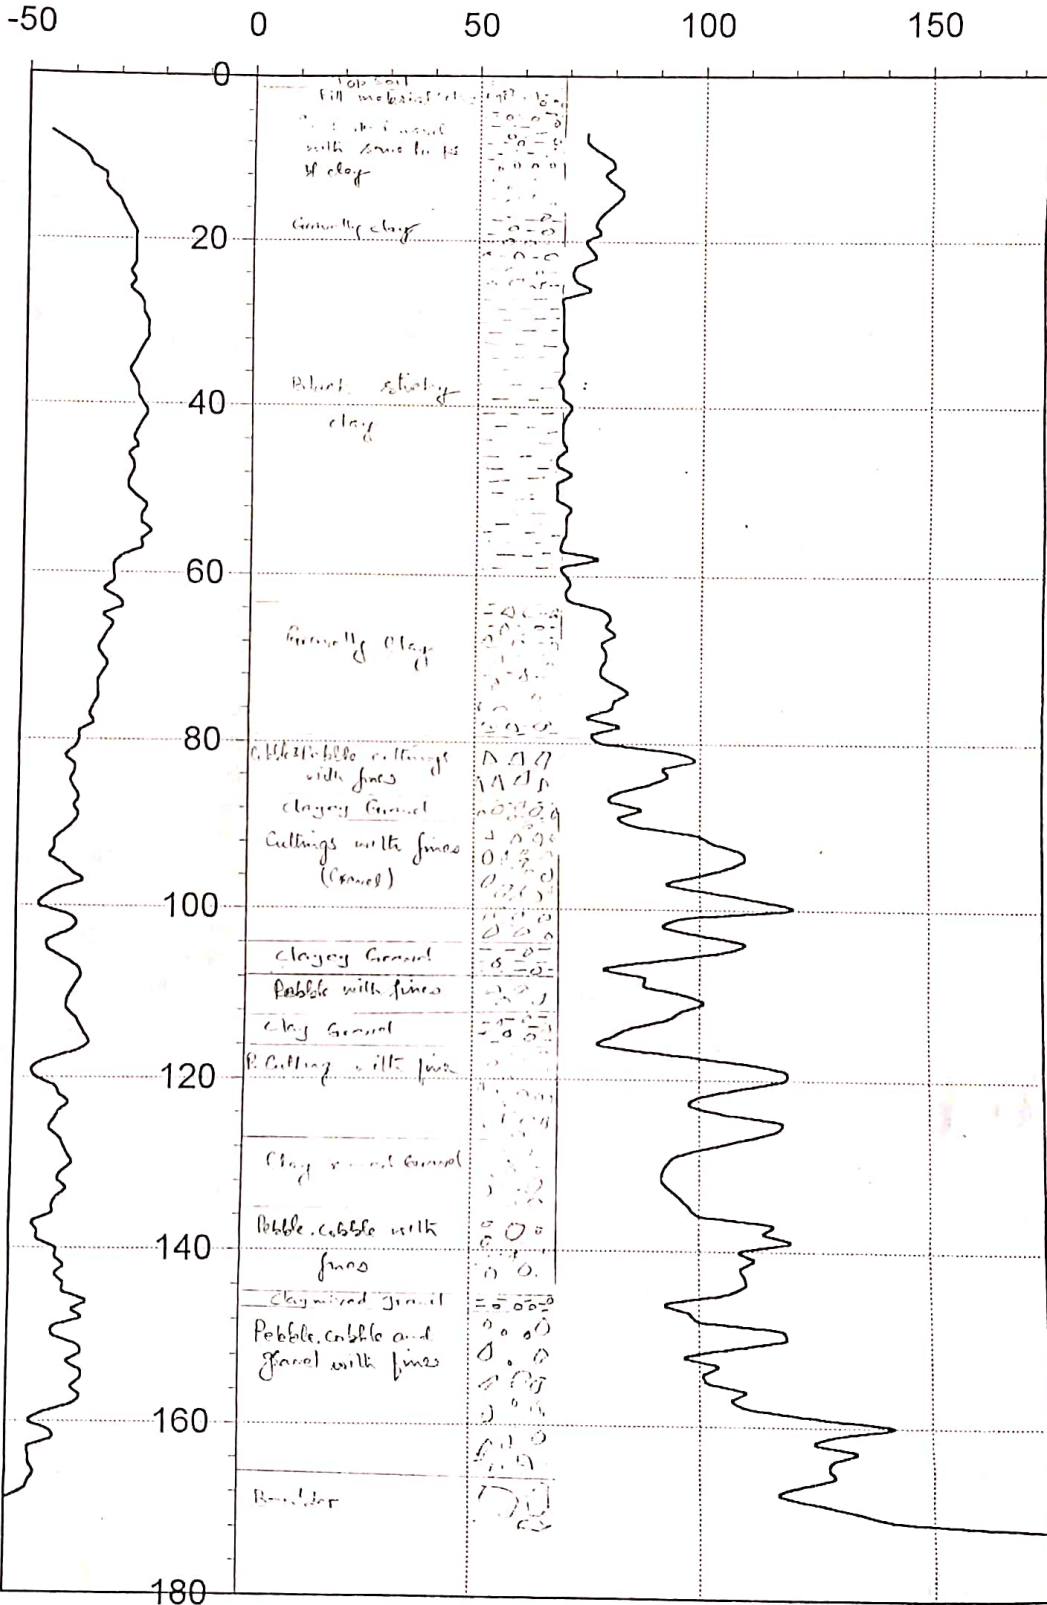 -50 0 50 100 150
0
Top Soil
Fill material
with some
of clay
Gravelly clay
20
Black sticky
40
clay
60
Gravelly Clay
80
Cobble & Pebble cuttings
with fines
Clayey Gravel
Cuttings with fines
(Gravel)
100
Clayey Gravel
Pebble with fines
Clay Gravel
P. Cutting with fines
120
Clay Gravel
Pebble, cobble with
140
fines
Clay mixed gravel
Pebble, cobble and
gravel with fines
160
Boulder
180